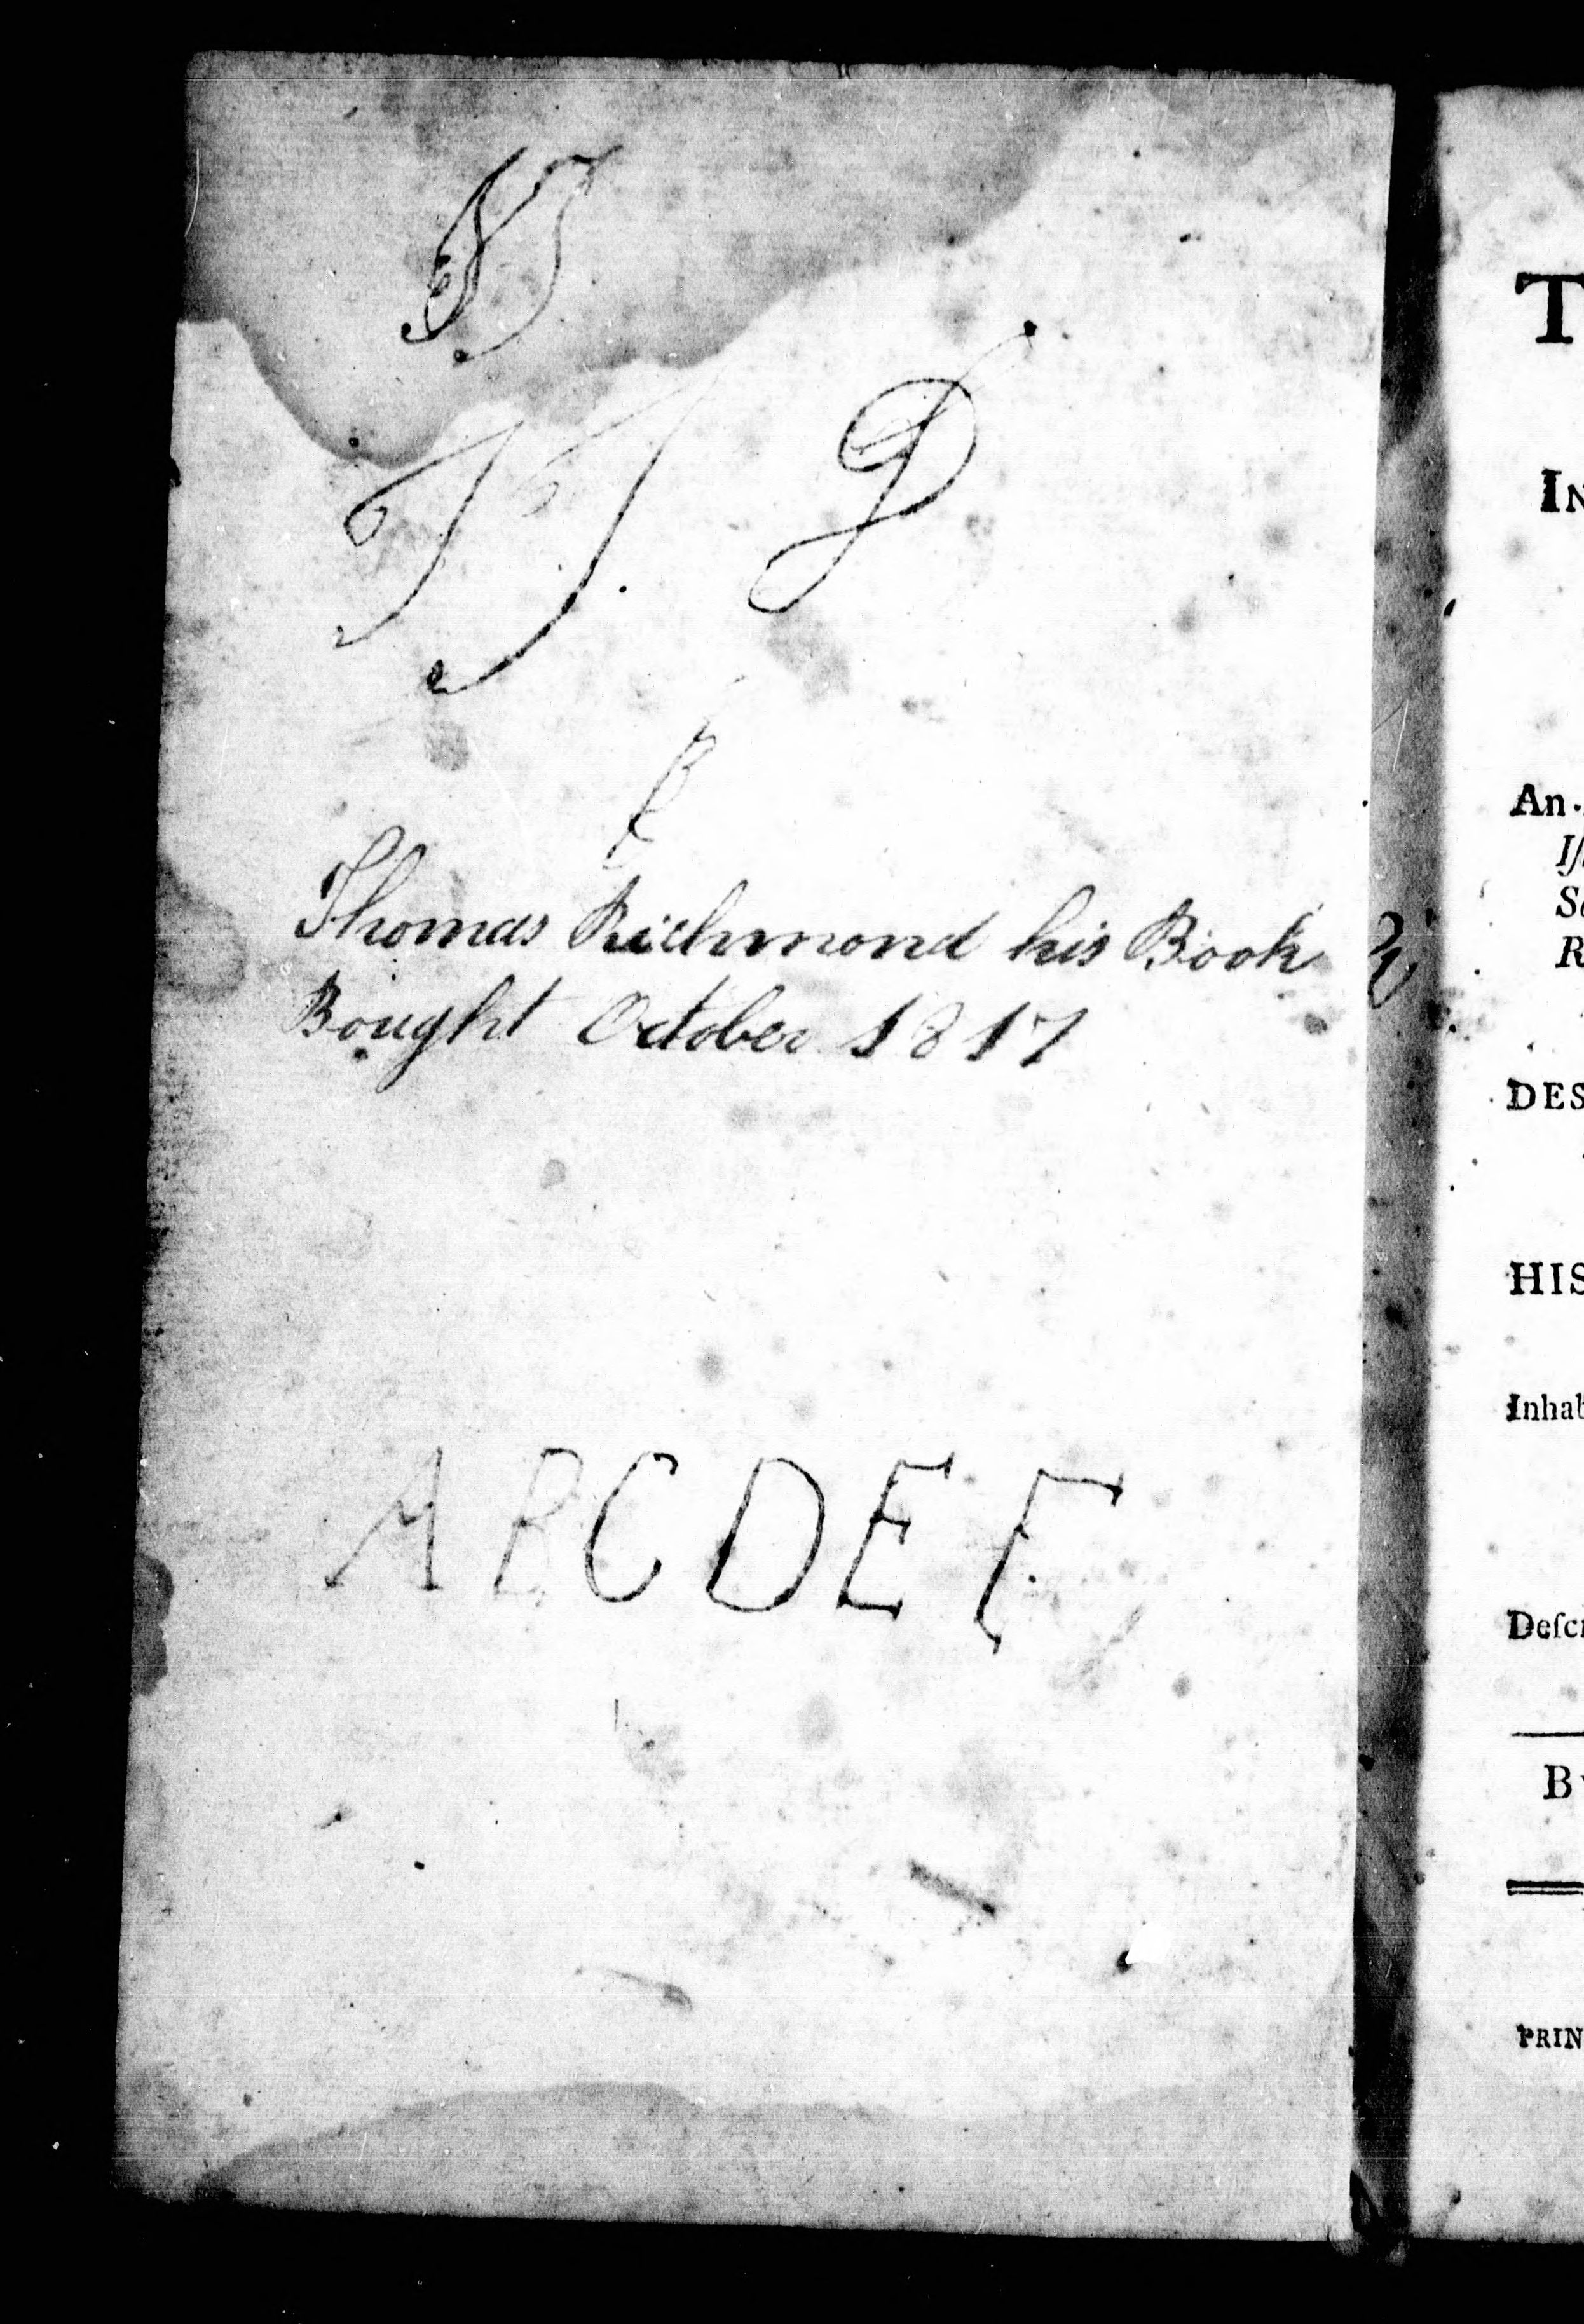 R
Thomas Richmond his Book
Bought October 1817
A B C D E F
T
IN
An
DES
HIS
Inhab
Deſc
B
PRIN